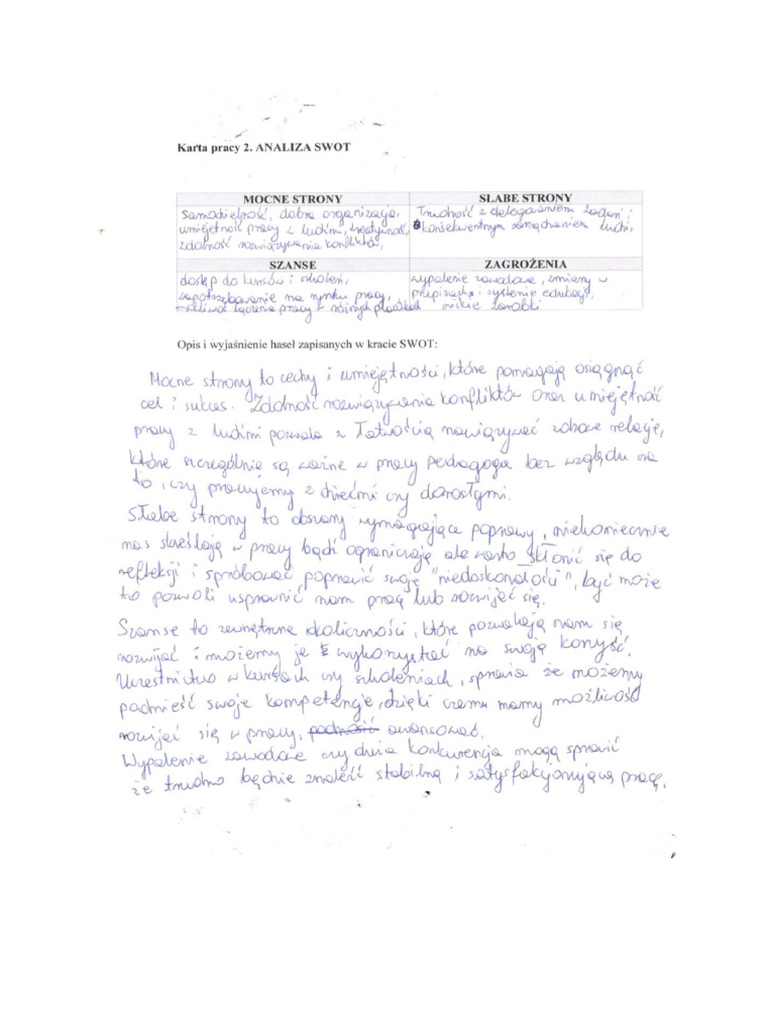 Karta pracy 2. ANALIZA SWOT
MOCNE STRONY
samodzielność, dobra organizacja,
umiejętność pracy z ludźmi, kreatywność,
zdolność rozwiązywania konfliktów,
SŁABE STRONY
Trudność z delegowaniem zadań i
konsekwentnym zarządzaniem ludźmi,
SZANSE
dostęp do kursów i szkoleń,
zapotrzebowanie na rynku pracy,
możliwość łączenia pracy w różnych placówkach
ZAGROŻENIA
wypalenie zawodowe, zmiany w
przepisach i systemie edukacji,
niskie zarobki
Opis i wyjaśnienie haseł zapisanych w kracie SWOT:
Mocne strony to cechy i umiejętności, które pomagają osiągnąć
cel i sukces. Zdolność rozwiązywania konfliktów oraz umiejętność
pracy z ludźmi pozwala z łatwością nawiązywać zdrowe relacje,
które szczególnie są ważne w pracy pedagoga bez względu na
to, czy pracujemy z dziećmi czy dorosłymi.
Słabe strony to obszary wymagające poprawy, niekoniecznie
nas skreślają w pracy bądź ograniczają ale warto skłonić się do
refleksji i spróbować poprawić swoje "niedoskonałości", być może
to pozwoli usprawnić nam pracę lub rozwijać się.
Szanse to zewnętrzne okoliczności, które pozwalają nam się
rozwijać i możemy je wykorzystać na swoją korzyść.
Uczestnictwo w kursach czy szkoleniach, sprawia że możemy
podnieść swoje kompetencje, dzięki czemu mamy możliwość
rozwijać się w pracy, podnosić awansować.
Wypalenie zawodowe czy duża konkurencja mogą sprawić
że trudno będzie znaleźć stabilną i satysfakcjonującą pracę.